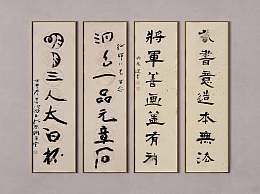 我書意造本無法
將軍善画蓋有神
洞天一品元章石
明月三人太白杯